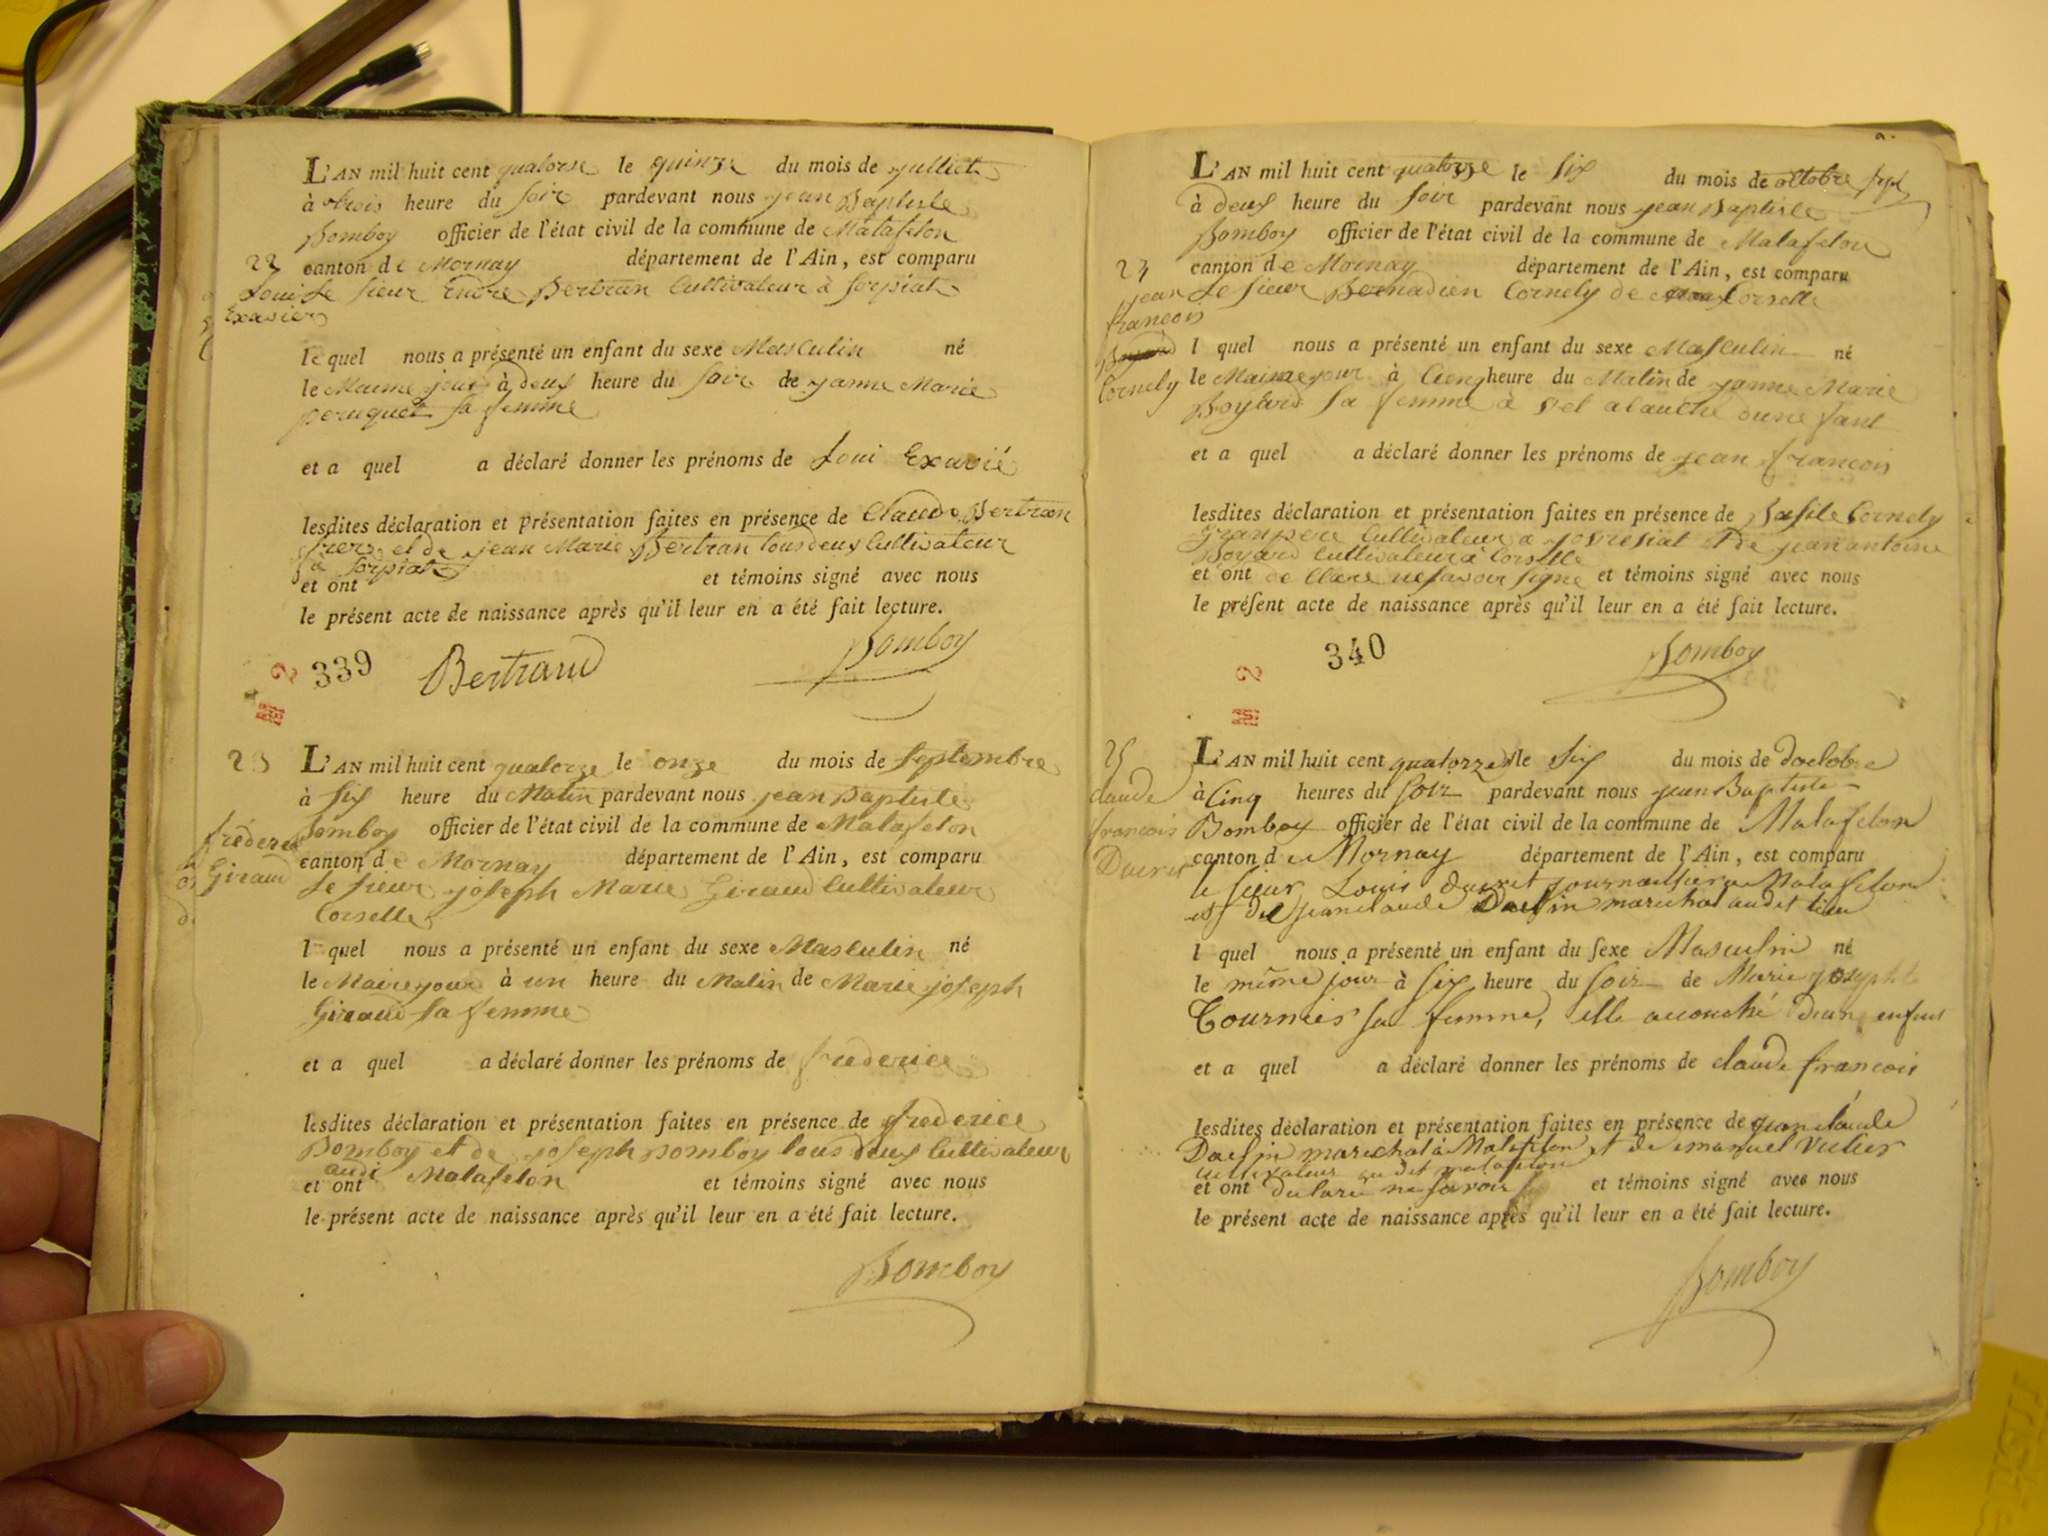 L'AN mil huit cent quatorze le quinze du mois de julliet
à trois heure du soir pardevant nous jean Baptiste
Bomboy officier de l'état civil de la commune de Matafelon
22 canton de Mornay département de l'Ain, est comparu
Loui Le sieur Bertran Cultivateur à sorpiat
Exavier
le quel nous a présenté un enfant du sexe Masculin né
le Maime jour à deux heure du soir de janne Marie
peruquet sa femme
et a quel a déclaré donner les prénoms de Loui Exavié
lesdites déclaration et présentation faites en présence de Claude Bertran
frere et de jean Marie Bertran tous deux Cultivateur
a sorpiat
et ont et témoins signé avec nous
le présent acte de naissance après qu'il leur en a été fait lecture.
2 339 Bertrand Bomboy
23 L'AN mil huit cent quatorze le onze du mois de septembre
à six heure du Matin pardevant nous jean Baptiste
fréderic Bomboy officier de l'état civil de la commune de Matafelon
Giraud canton de Mornay département de l'Ain, est comparu
Le sieur joseph Marie Giraud Cultivateur
Corselle
l quel nous a présenté un enfant du sexe Masculin né
le Maime jour à un heure du Matin de Marie joseph
Giraud sa femme
et a quel a déclaré donner les prénoms de frederice
lesdites déclaration et présentation faites en présence de frederice
Bomboy et de joseph bomboy tous deux Cultivateur
audi Matafelon
et ont et témoins signé avec nous
le présent acte de naissance après qu'il leur en a été fait lecture.
Bomboy
L'AN mil huit cent quatorze le six du mois de octobre
à deux heure du soir pardevant nous jean Baptiste
Bomboy officier de l'état civil de la commune de Matafelon
canton de Mornay département de l'Ain, est comparu
jean Le sieur Bernadien Cornely de Corselle
francois
l quel nous a présenté un enfant du sexe Masculin né
Cornely le Maime jour à heure du Matin de janne Marie
Boyard sa femme
et a quel a déclaré donner les prénoms de jean francois
lesdites déclaration et présentation faites en présence de Basile Cornely
granpere Cultivateur a et de jean antoine
Boyard Cultivateur à Corselle
et ont de Clare ne savoir signe et témoins signé avec nous
le présent acte de naissance après qu'il leur en a été fait lecture.
2 340 Bomboy
25 L'AN mil huit cent quatorze le six du mois de doctobre
claude à Cinq heures du soir pardevant nous jean Baptiste
francois Bomboy officier de l'état civil de la commune de Matafelon
canton de Mornay département de l'Ain, est comparu
le sieur Louis journallier a Matafelon
et de jean claude marechal audit lieu
l quel nous a présenté un enfant du sexe Masculin né
le même jour à six heure du soir de Marie josephte
Tournier sa femme, elle acouché d'un enfant
et a quel a déclaré donner les prénoms de claude francois
lesdites déclaration et présentation faites en présence de jean claude
marechal à Matafelon et de emanuel
cultivateur au dit matafelon
et ont declaré ne savoir et témoins signé avec nous
le présent acte de naissance après qu'il leur en a été fait lecture.
Bomboy